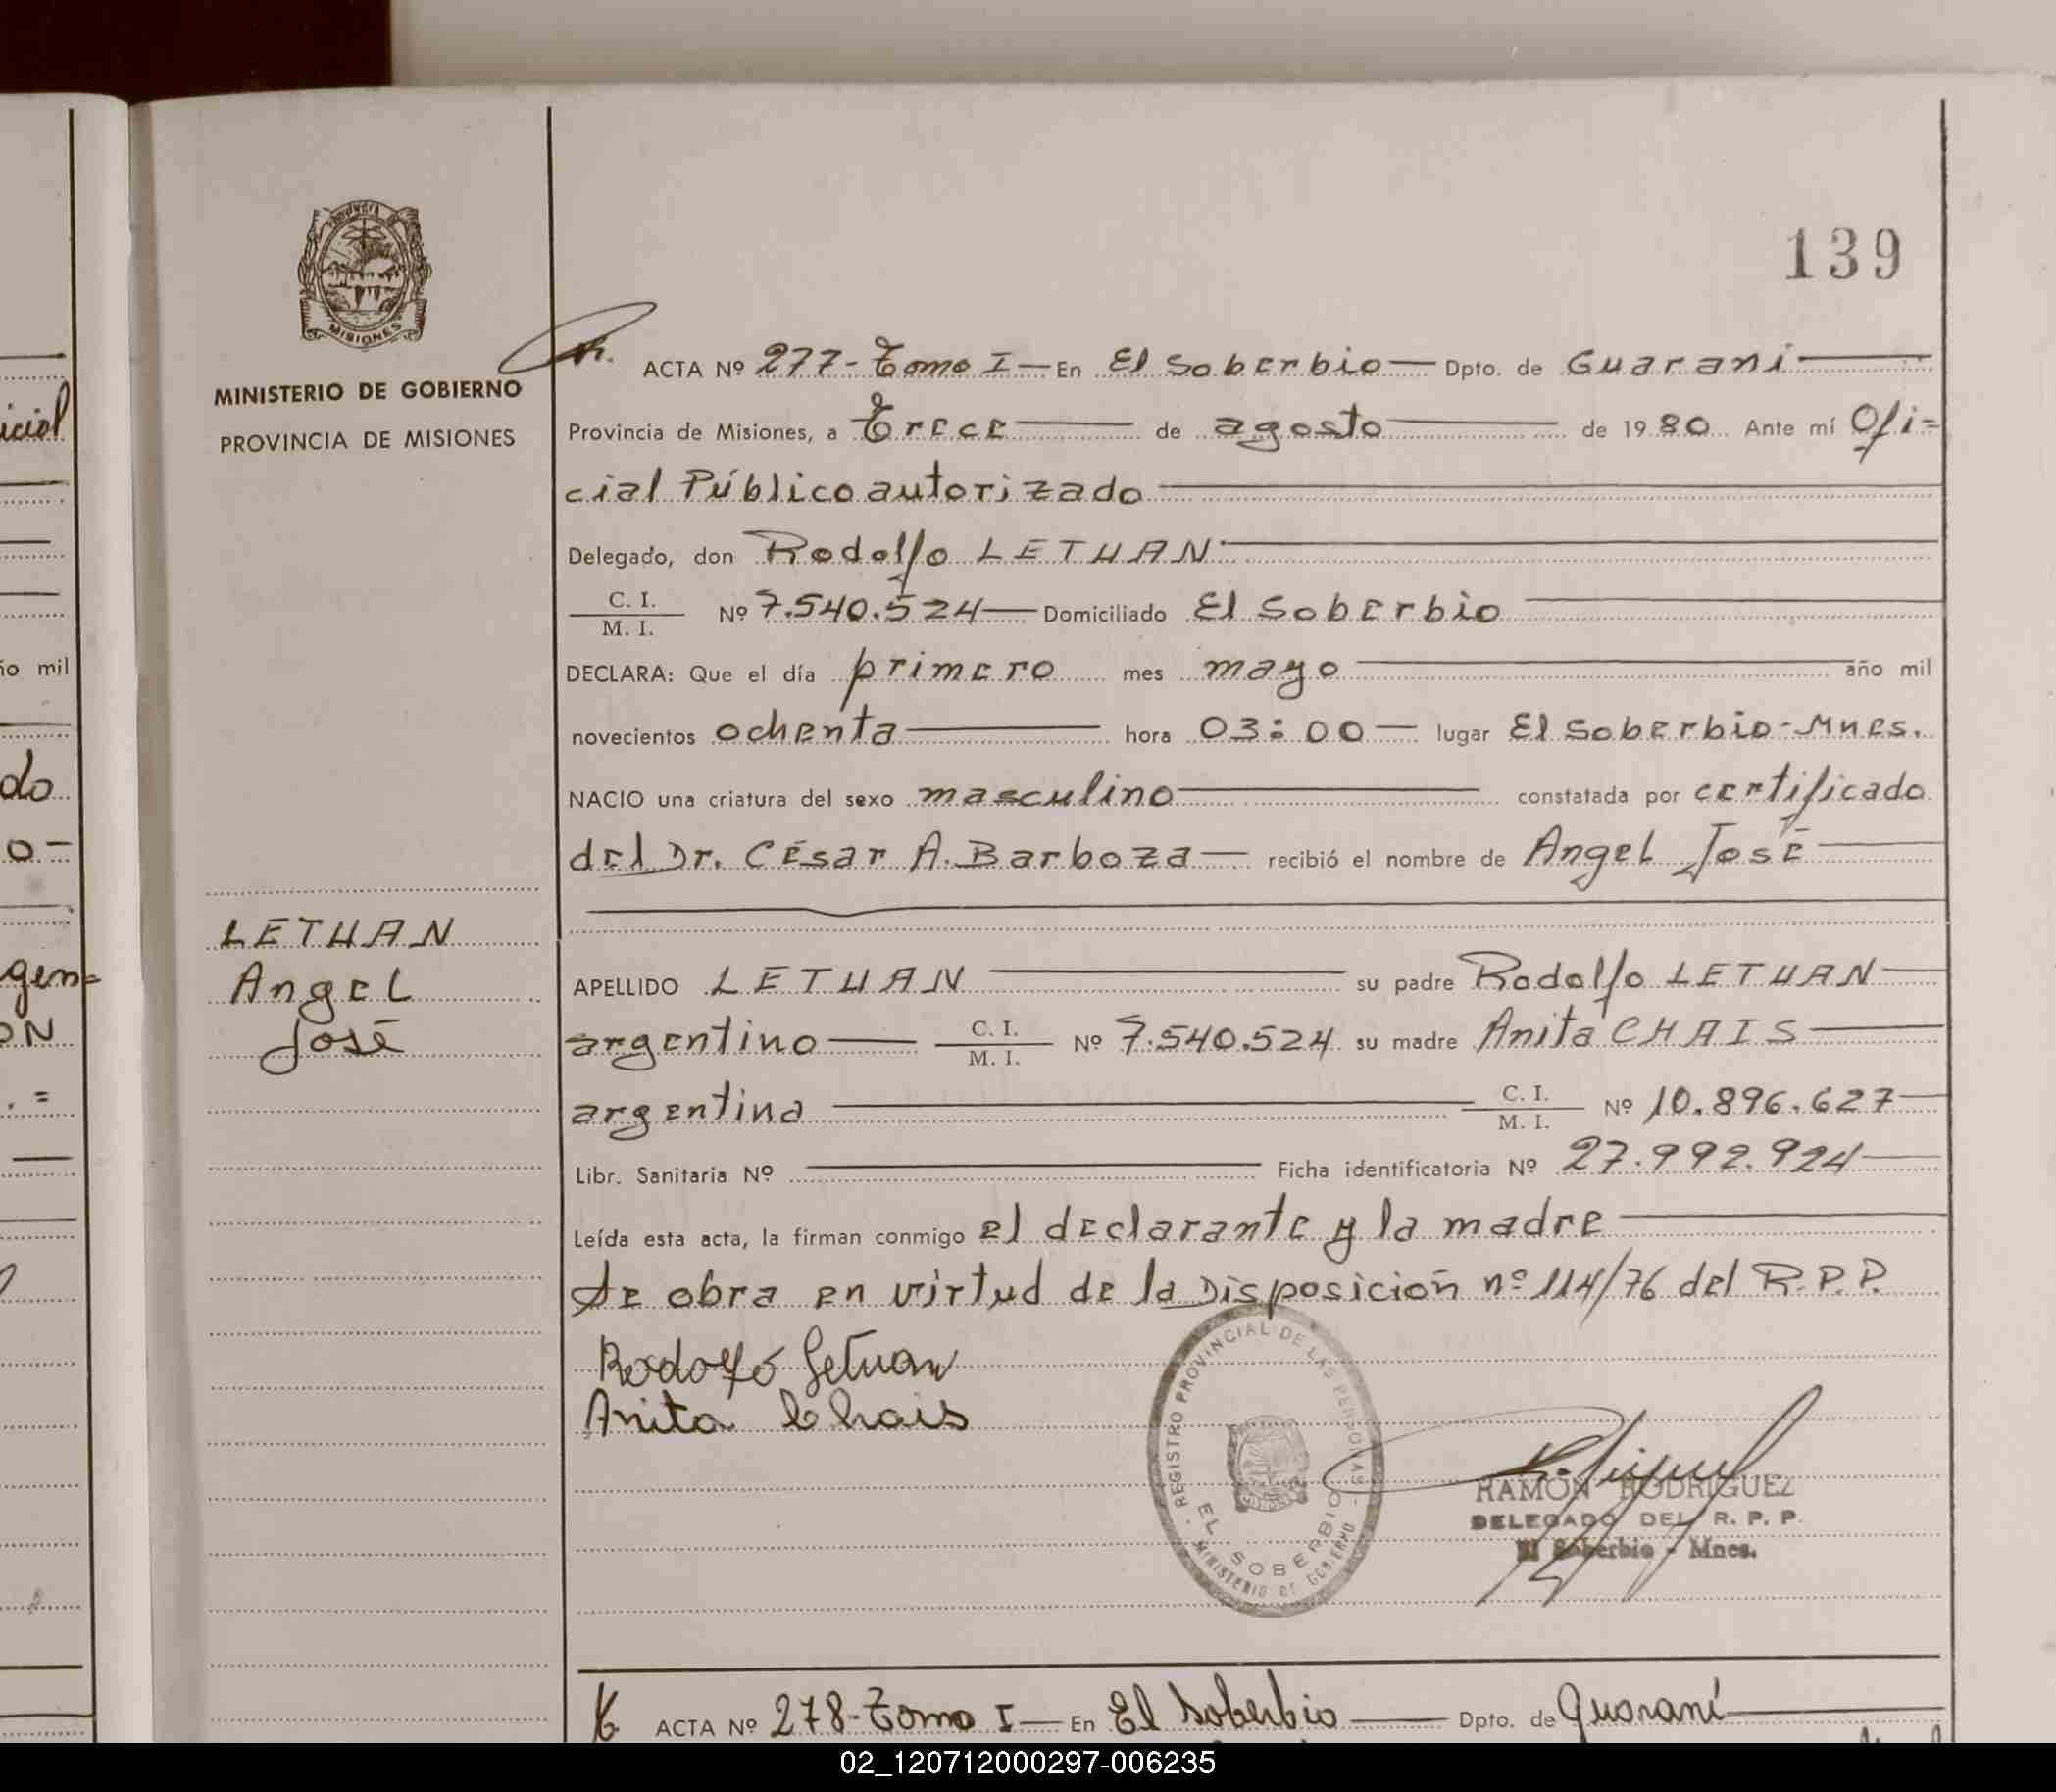 139
MISIONES
MINISTERIO DE GOBIERNO
PROVINCIA DE MISIONES
LETHAN
Angel
José
ACTA Nº 277-Tomo I— En El Soberbio— Dpto. de Guaraní
Provincia de Misiones, a Trece de agosto de 1980. Ante mí Ofi=
cial Público autorizado
Delegado, don Rodolfo LETHAN
C. I.
M. I. Nº 7.540.524— Domiciliado El Soberbio
DECLARA: Que el día primero mes mayo año mil
novecientos ochenta hora 03:00— lugar El Soberbio-Mnes.
NACIO una criatura del sexo masculino constatada por certificado
del Dr. César A. Barboza— recibió el nombre de Angel José
APELLIDO LETHAN su padre Rodolfo LETHAN
argentino— C. I.
M. I. Nº 7.540.524 su madre Anita CHAIS
argentina C. I.
M. I. Nº 10.896.627
Libr. Sanitaria Nº Ficha identificatoria Nº 27.992.924
Leída esta acta, la firman conmigo el declarante y la madre
de obra en virtud de la Disposición nº 114/76 del R.P.P.
Rodolfo Lethan
Anita Chais
REGISTRO PROVINCIAL DE LAS PERSONAS
EL SOBERBIO
MINISTERIO DE GOBIERNO
RAMÓN RODRIGUEZ
DELEGADO DEL R. P. P.
El Soberbio - Mnes.
ACTA Nº 278-Tomo I— En El Soberbio Dpto. de Guaraní
icial
ño mil
do
o-
gen=
ON
. =
02_120712000297-006235